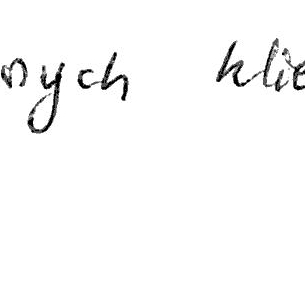 nych klie